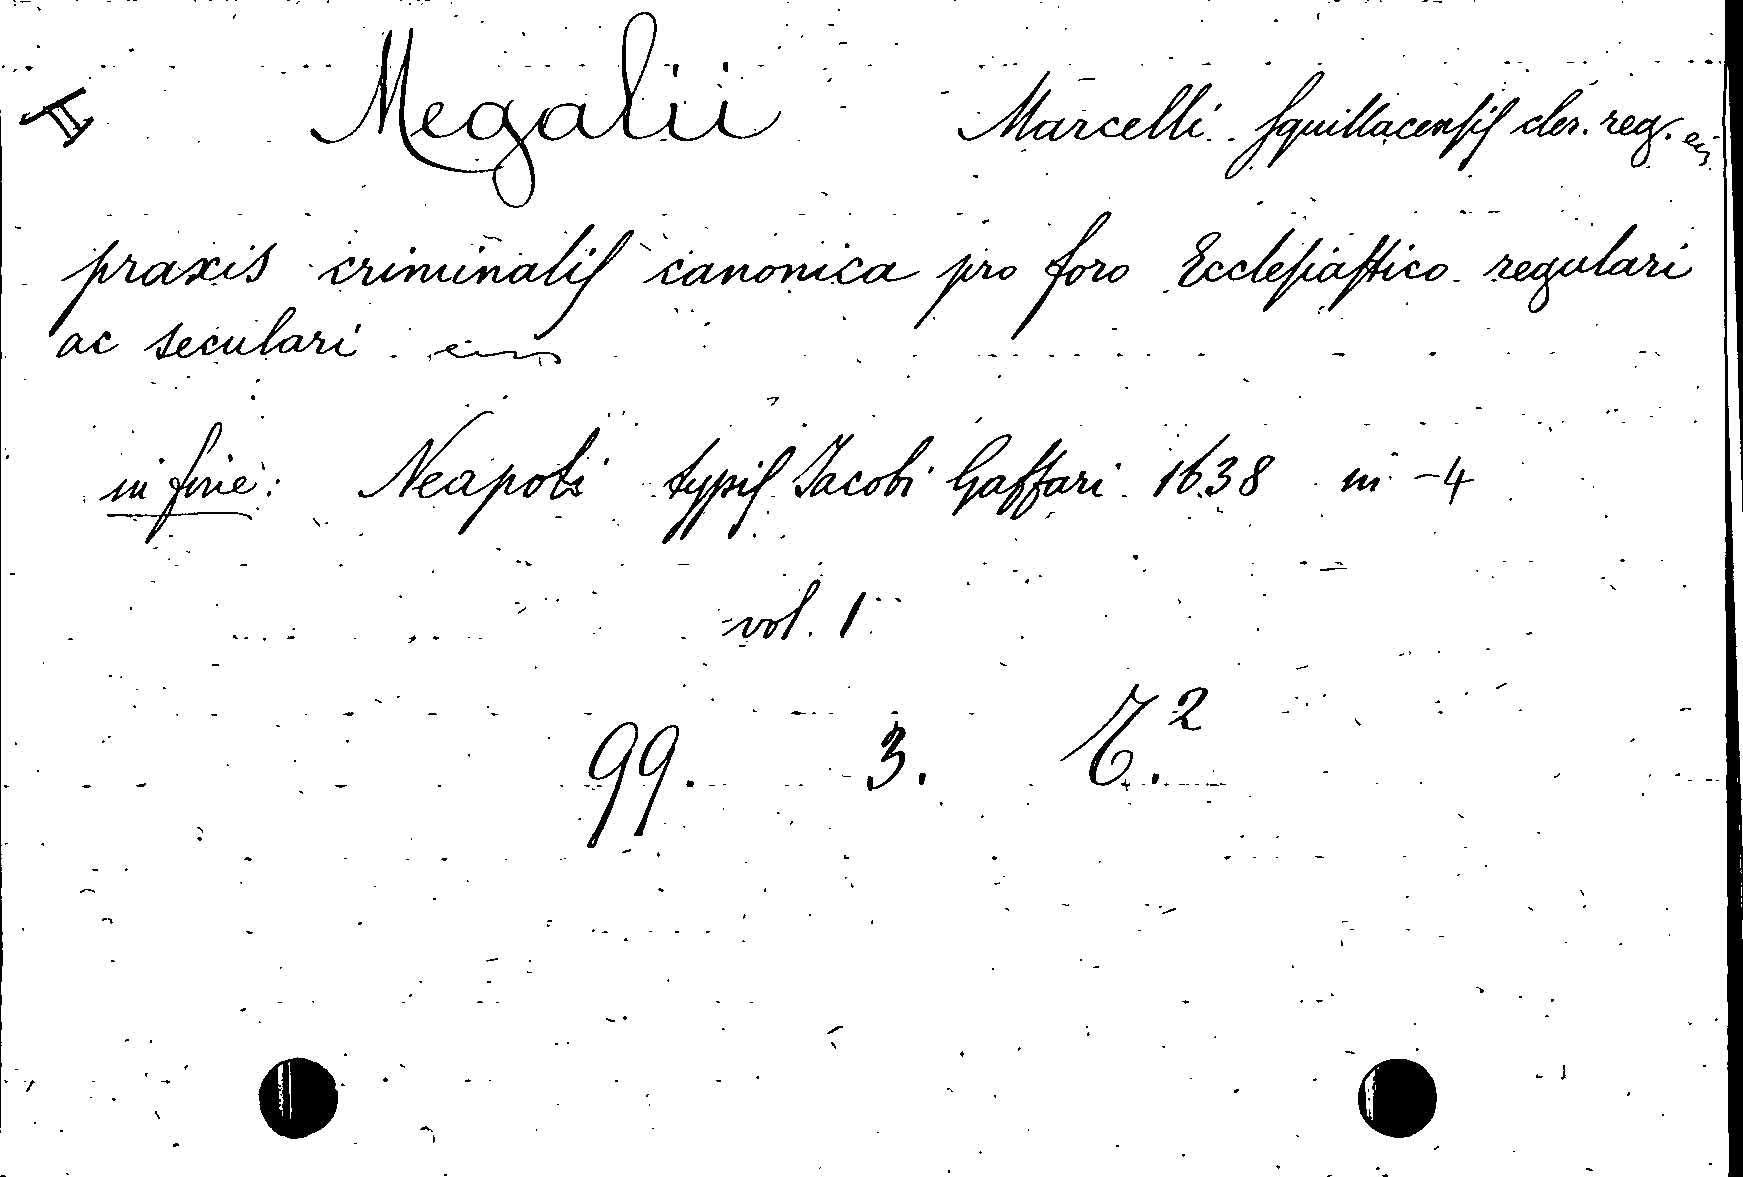 II Megalii Marcelli Squillacensis cler. reg. etc
praxis criminalis canonica pro foro Ecclesiastico regulari
ac seculari etc
in fine: Neapoli typis Jacobi Gaffari 1638 in-4
vol. 1
99. 3. E.²